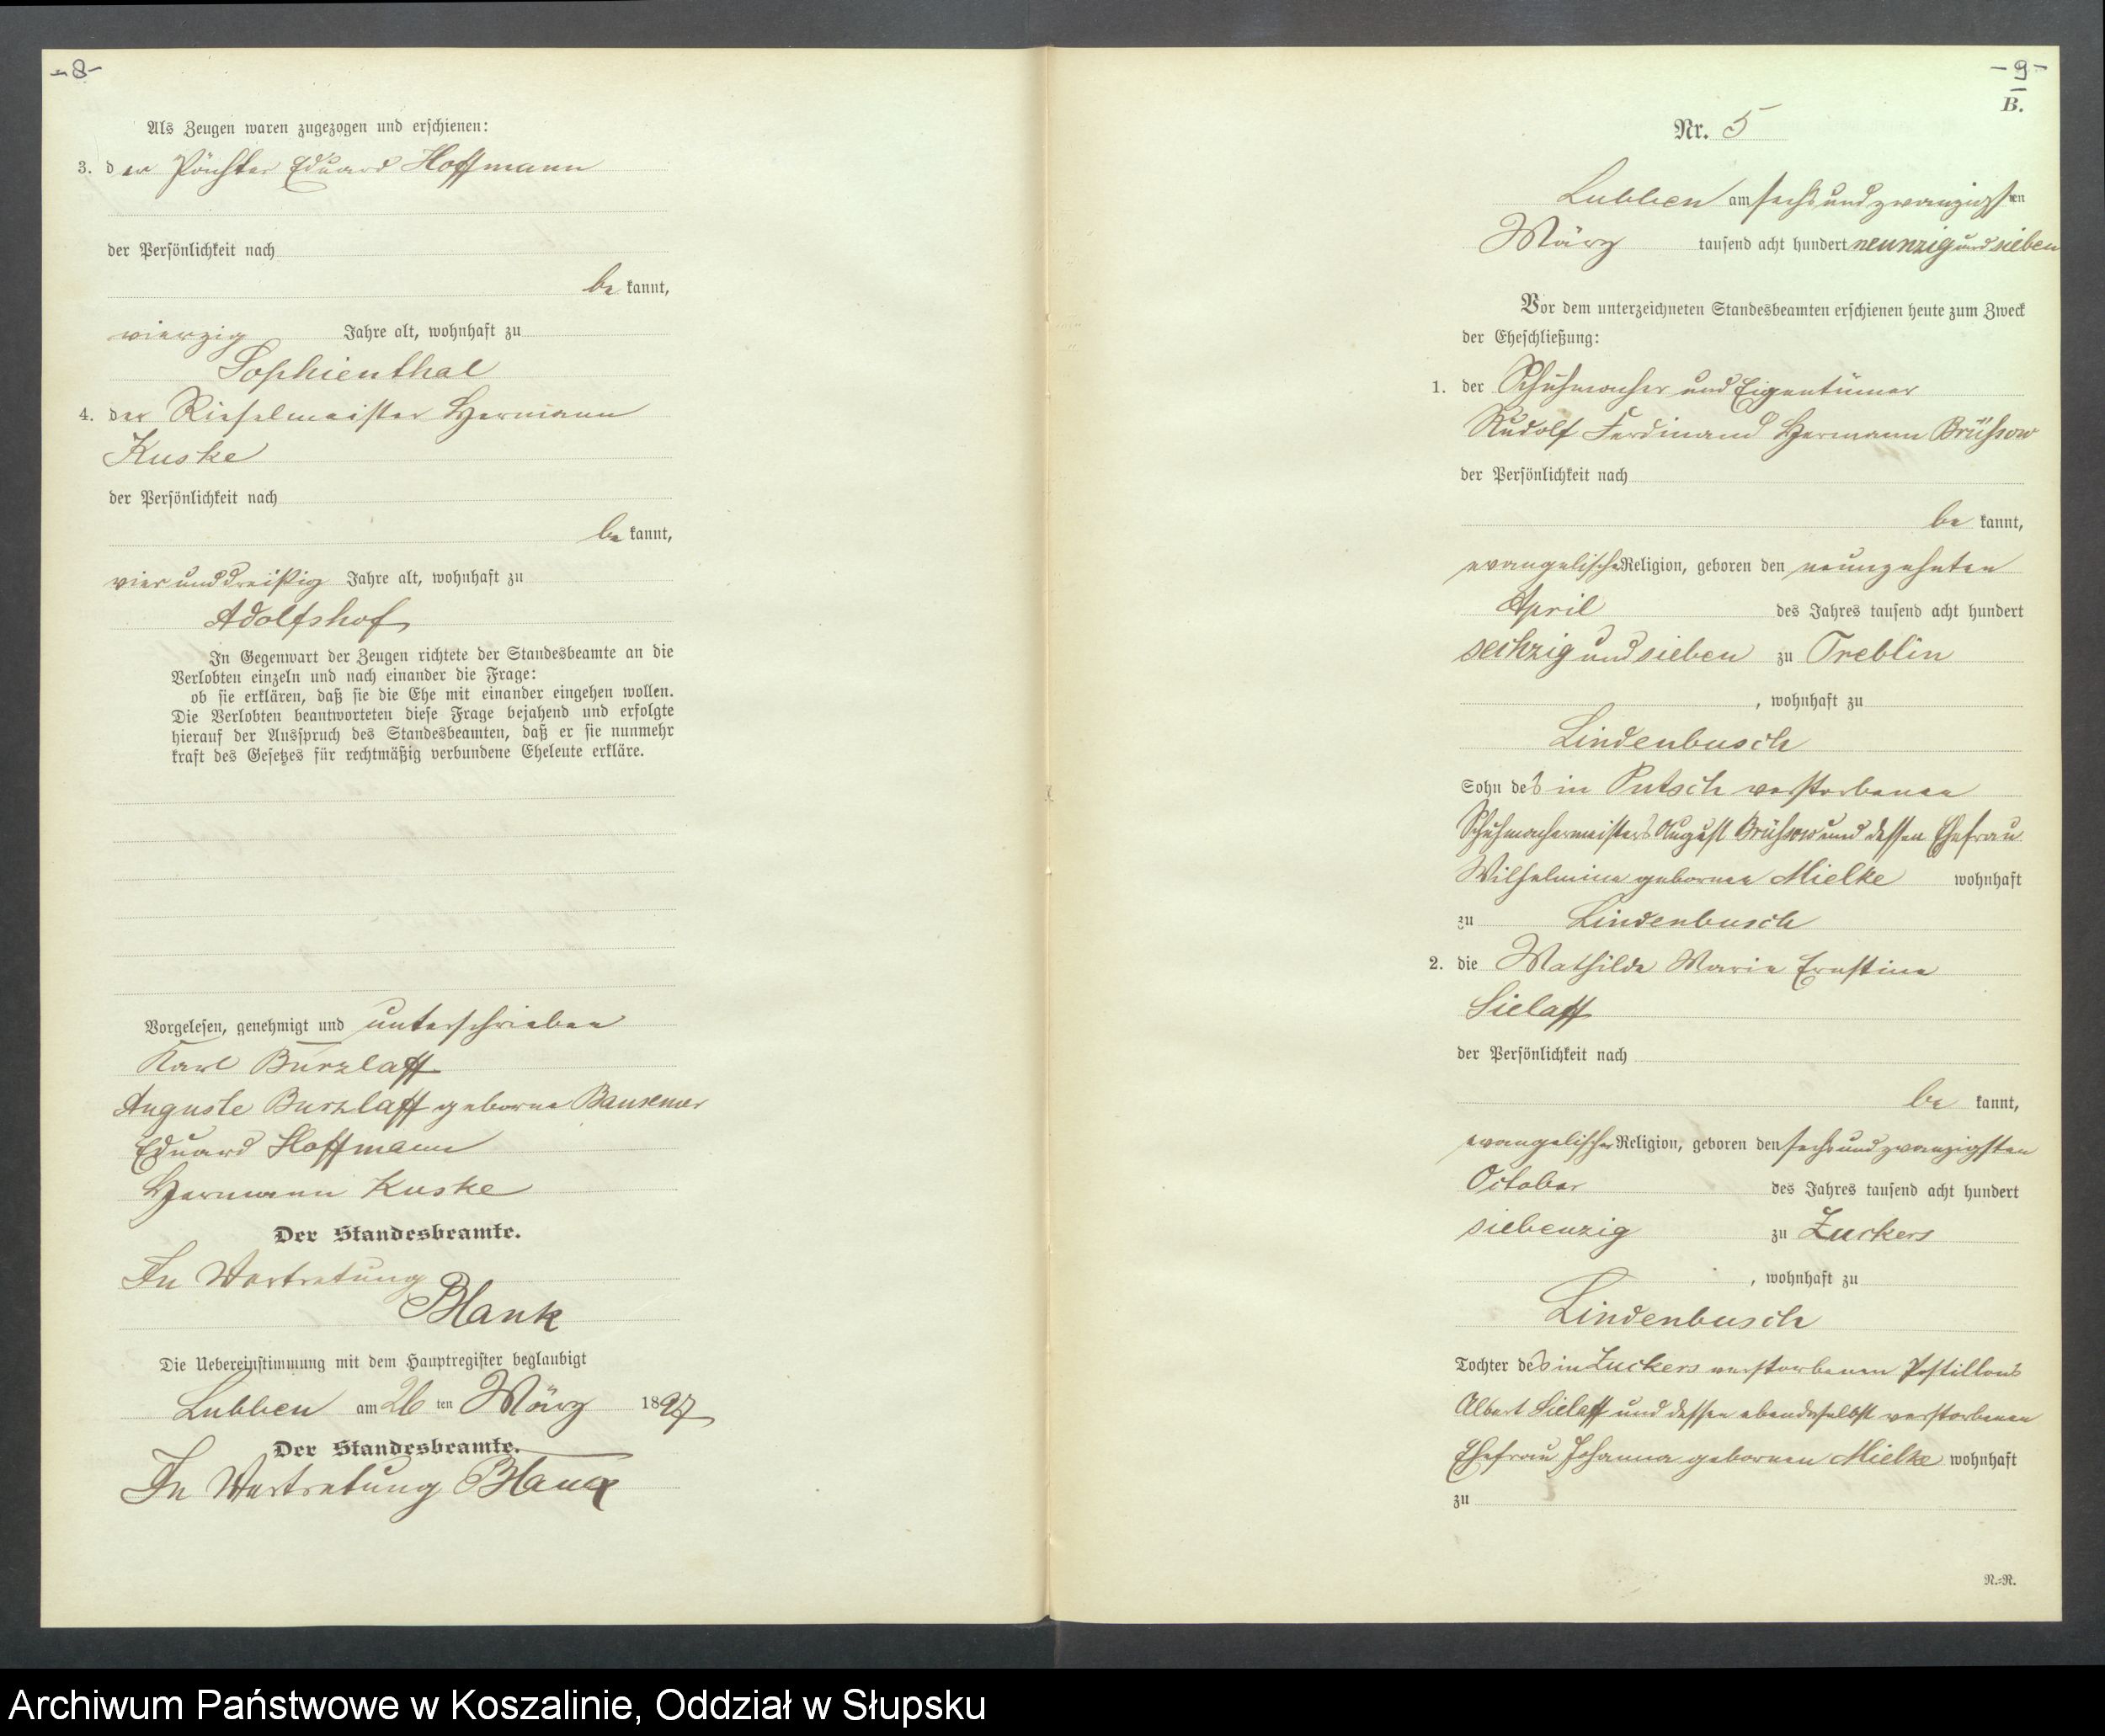 - 8 -
Als Zeugen waren zugezogen und erschienen:
3. der Pächter Eduard Hoffmann
der Persönlichkeit nach
be kannt,
vierzig Jahre alt, wohnhaft zu
Sophienthal
4. der Rieselmeister Hermann
Kuske
der Persönlichkeit nach
be kannt,
vier und dreißig Jahre alt, wohnhaft zu
Adolfshof
In Gegenwart der Zeugen richtete der Standesbeamte an die
Verlobten einzeln und nach einander die Frage:
ob sie erklären, daß sie die Ehe mit einander eingehen wollen.
Die Verlobten beantworteten diese Frage bejahend und erfolgte
hierauf der Ausspruch des Standesbeamten, daß er sie nunmehr
kraft des Gesetzes für rechtmäßig verbundene Eheleute erkläre.
Vorgelesen, genehmigt und unterschrieben
Karl Burzlaff
Auguste Burzlaff geborne Bansemer
Eduard Hoffmann
Hermann Kuske
Der Standesbeamte.
In Vertretung
Blank
Die Uebereinstimmung mit dem Hauptregister beglaubigt
Lubben am 26 ten März 1897
Der Standesbeamte.
In Vertretung Blank
- 9 -
B.
Nr. 5
Lubben am sechs und zwanzigsten
März tausend acht hundert neunzig und sieben
Vor dem unterzeichneten Standesbeamten erschienen heute zum Zweck
der Eheschließung:
1. der Schuhmacher und Eigentümer
Rudolf Ferdinand Hermann Brüßow
der Persönlichkeit nach
be kannt,
evangelischer Religion, geboren den neunzehnten
April des Jahres tausend acht hundert
sechzig und sieben zu Treblin
, wohnhaft zu
Lindenbusch
Sohn des in Putsch verstorbenen
Schuhmachermeisters August Brüßow und dessen Ehefrau
Wilhelmine gebornen Mielke wohnhaft
zu Lindenbusch
2. die Mathilde Marie Ernstine
Sielaff
der Persönlichkeit nach
be kannt,
evangelischer Religion, geboren den sechs und zwanzigsten
October des Jahres tausend acht hundert
siebenzig zu Zuckers
, wohnhaft zu
Lindenbusch
Tochter des in Zuckers verstorbenen Postillons
Albert Sielaff und dessen ebendaselbst verstorbenen
Ehefrau Johanna gebornen Mielke wohnhaft
zu
N.=R.
Archiwum Państwowe w Koszalinie, Oddział w Słupsku